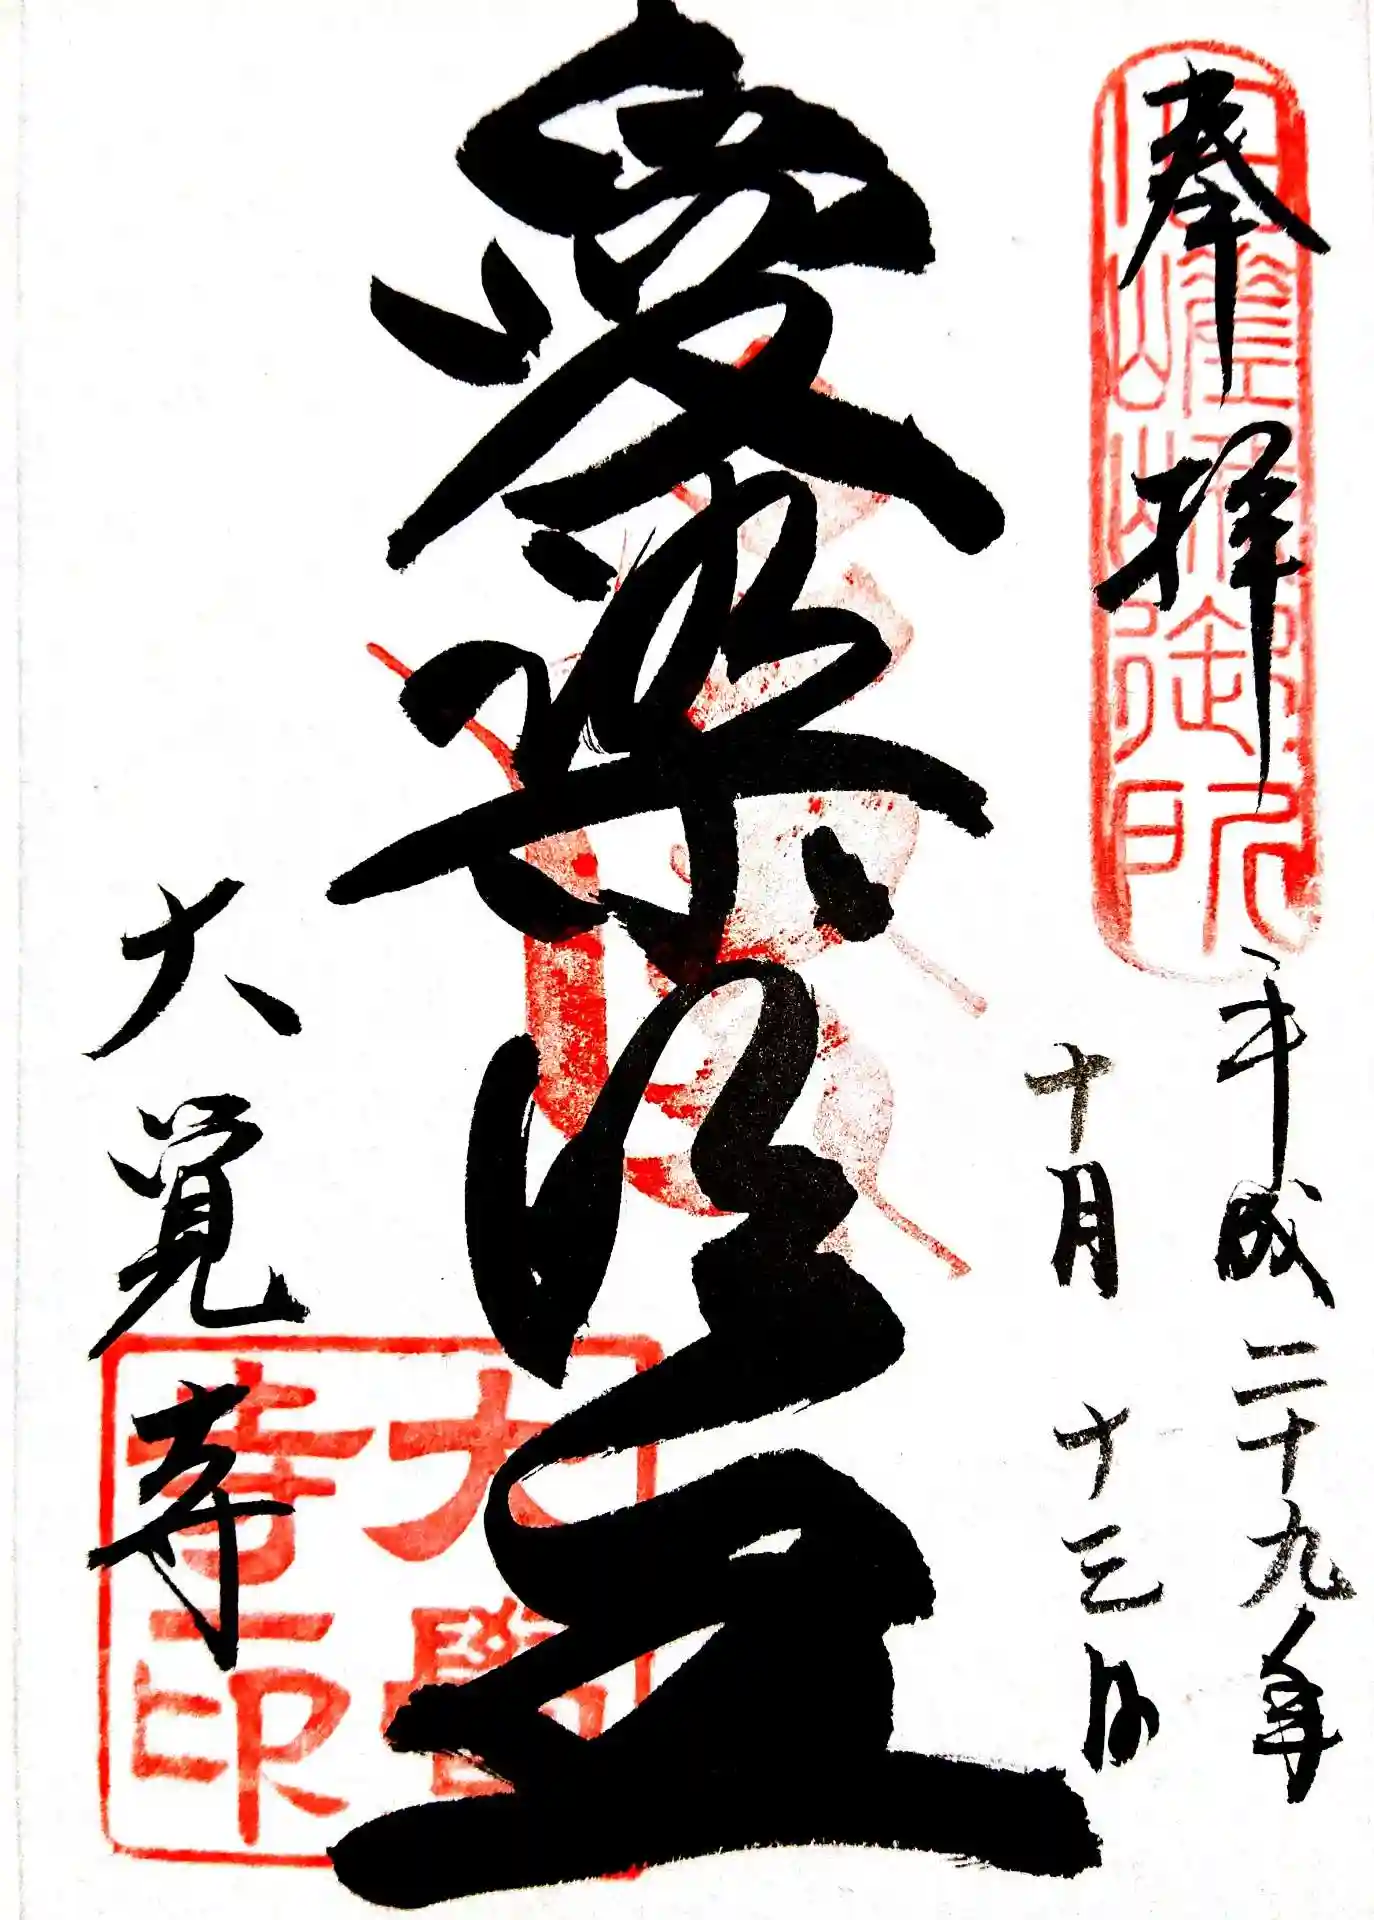 奉拝
旧嵯峨御所
平成二十九年
十月十三日
愛染明王
大覚寺
大覺
寺印